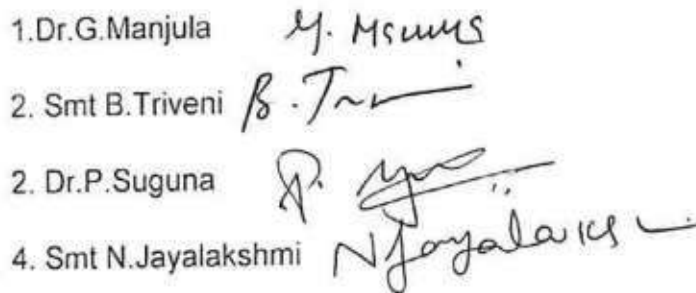 1.Dr.G.Manjula
2. Smt B.Triveni B.
2. Dr.P.Suguna P.
4. Smt N.Jayalakshmi NJayalaks